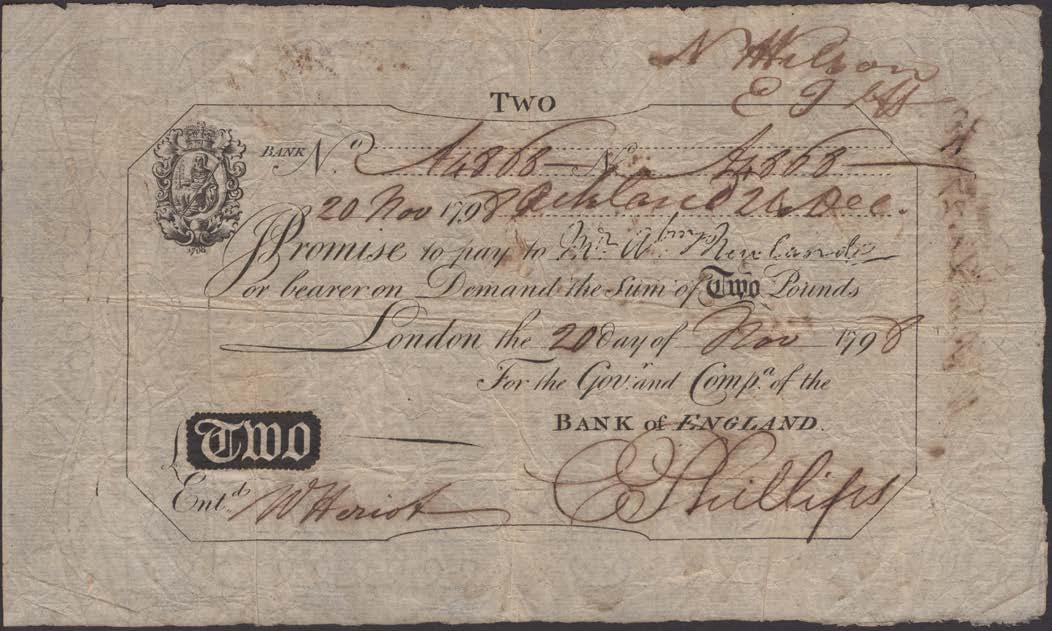 TWO
BANK No. A4868 No A4868
20 Nov 1798 26 Dec.
I Promise to pay to Mr. Abm. Newland
or bearer on Demand the Sum of Two Pounds
London the 20 day of Nov 1798
For the Govr. and Compa. of the
BANK of ENGLAND.
£ TWO
Entd. W Heriot
E Phillips